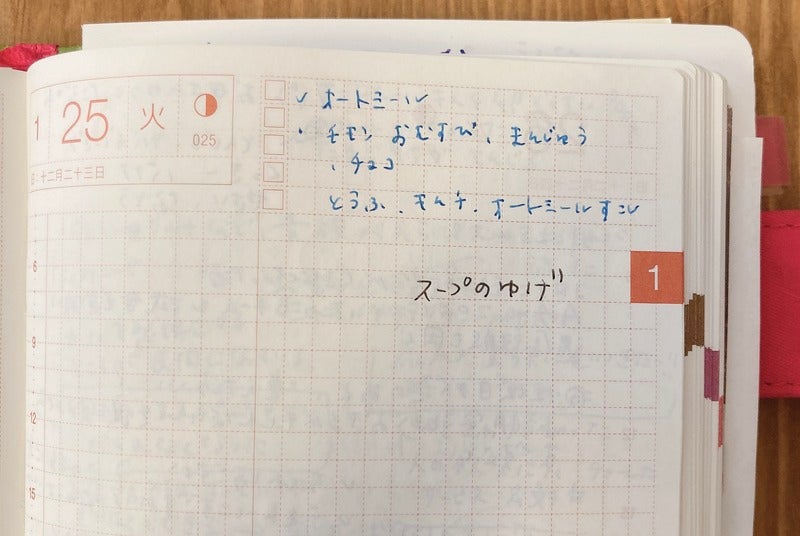 1 25 火
025
旧・十二月二十三日
✓ オートミール
・チモシ おむすび、まんじゅう
、チョコ
とうふ、キムチ、オートミール
1
スープのゆげ
6
9
12
15